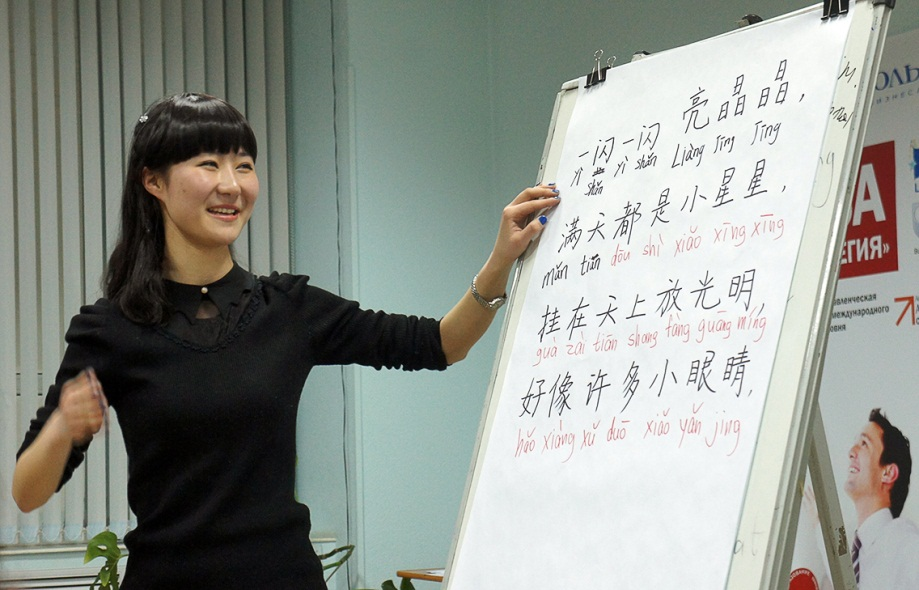 一闪一闪 亮晶晶，
yì shǎn yì shǎn Liàng Jīng Jīng
满天都是小星星，
mǎn tiān dōu shì xiǎo xīng xīng
挂在天上放光明，
guà zài tiān shang fàng guāng míng
好像许多小眼睛，
hǎo xiàng xǔ duō xiǎo yǎn jing
ЕГИЯ»